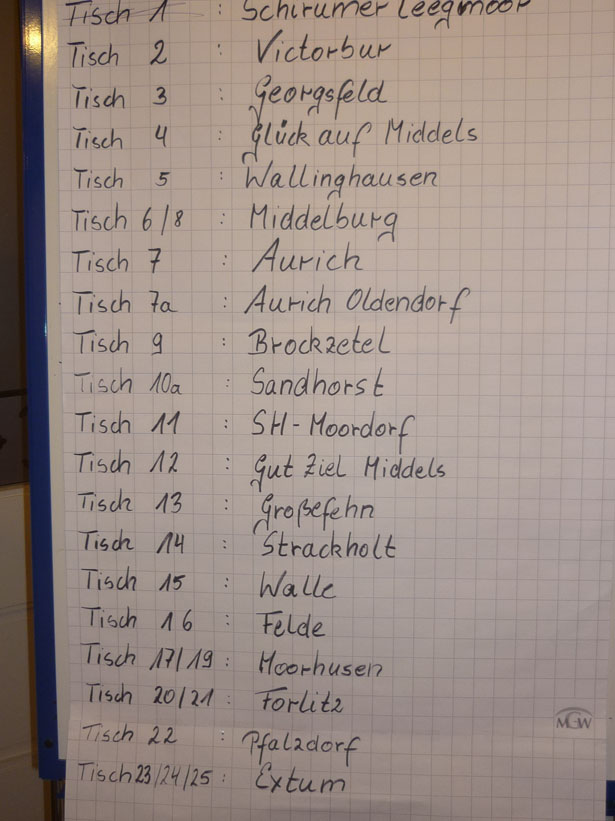 Tisch 1 : Schirumer Leegmoor
Tisch 2 : Victorbur
Tisch 3 : Georgsfeld
Tisch 4 : Glück auf Middels
Tisch 5 : Wallinghausen
Tisch 6/8 : Middelburg
Tisch 7 : Aurich
Tisch 7a : Aurich Oldendorf
Tisch 9 : Brockzetel
Tisch 10a : Sandhorst
Tisch 11 : SH-Moordorf
Tisch 12 : Gut Ziel Middels
Tisch 13 : Großefehn
Tisch 14 : Strackholt
Tisch 15 : Walle
Tisch 16 : Felde
Tisch 17/19 : Moorhusen
Tisch 20/21 : Forlitz
MGW
Tisch 22 : Pfalzdorf
Tisch 23/24/25 : Extum